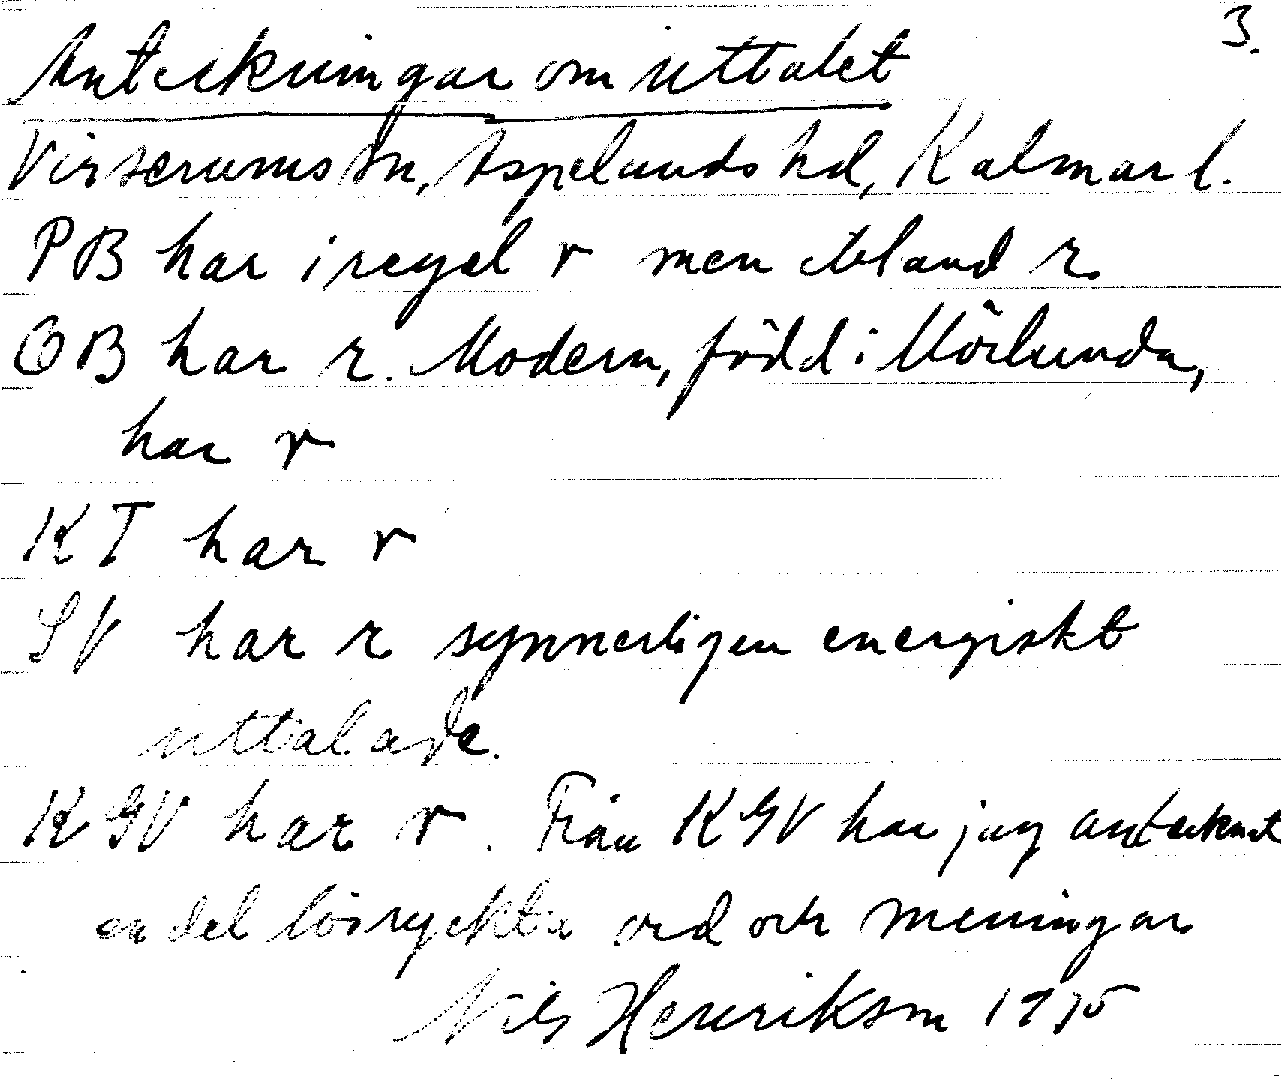 3.
Anteckningar om uttalet
Virserums sn, Aspelands hd, Kalmar l.
PB har i regel r men ibland r.
OB har r. Modern, född i Mörlunda,
har r
KT har r
SV har r synnerligen energiskt
uttalade.
KGV har r. Från KGV har jag antecknat
en del lösryckta ord och meningar
Nils Henrikson